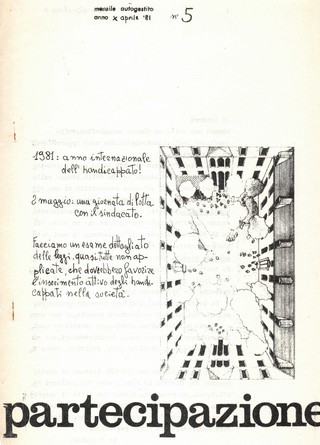 mensile autogestito
anno X aprile '81 n° 5
1981: anno internazionale
dell'handicappato!
2 maggio: una giornata di lotta
con il sindacato.
Facciamo un esame dettagliato
delle leggi, quasi tutte non ap-
plicate, che dovrebbero favorire
l'inserimento attivo degli handi-
cappati nella società.
partecipazione